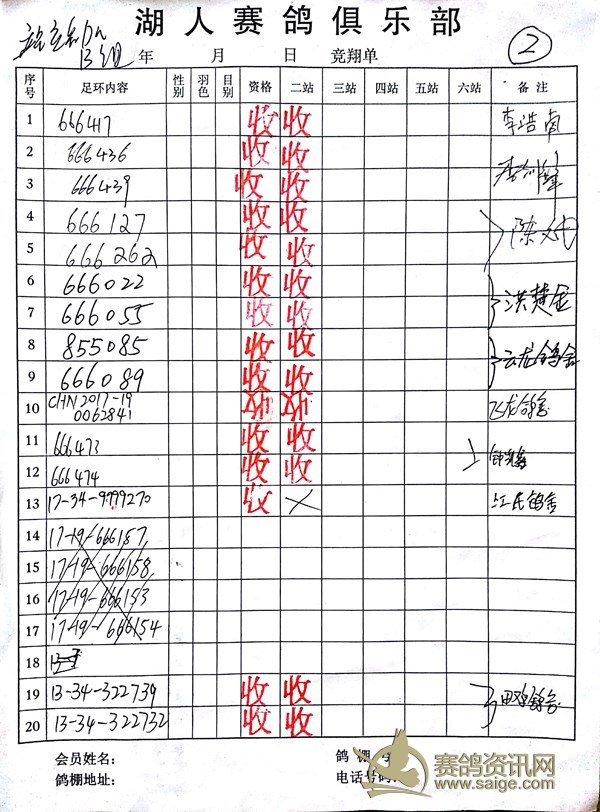 湖人赛鸽俱乐部
13组 年 月 日 竞翔单 ②
序号 足环内容 性别 羽色 目别 资格 二站 三站 四站 五站 六站 备注
1 666417 收 收 李浩南
2 666436 收 收
3 666439 收 收
4 666127 收 收 陈
5 666262 收 收
6 666022 收 收 洪楚金
7 666055 收 收
8 855085 收 收 云龙鸽舍
9 666089 收 收
10 CHN 2017-19
0062841 飞龙鸽舍
11 666473 收 收
12 666474 收 收
13 17-34-9999270 收 × 江氏鸽舍
14 17-19-666157
15 17-19-666158
16 17-19-666153
17 17-19-666154
18
19 13-34-322739 收 收
20 13-34-322732 收 收
会员姓名: 鸽棚
鸽棚地址: 电话号码:
赛鸽资讯网
www.saige.com